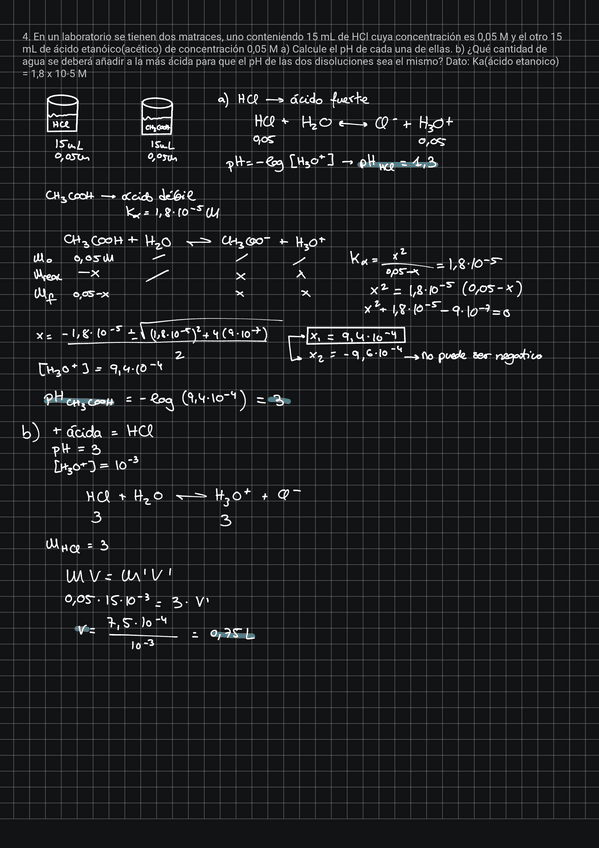 4. En un laboratorio se tienen dos matraces, uno conteniendo 15 mL de HCl cuya concentración es 0,05 M y el otro 15
mL de ácido etanóico(acético) de concentración 0,05 M a) Calcule el pH de cada una de ellas. b) ¿Qué cantidad de
agua se deberá añadir a la más ácida para que el pH de las dos disoluciones sea el mismo? Dato: Ka(ácido etanoico)
= 1,8 x 10-5 M
HCl
15mL
0,05M
CH₃COOH
15mL
0,05M
a) HCl → ácido fuerte
HCl + H₂O ⟷ Cl⁻ + H₃O+
0,05 0,05
pH = -log [H₃O+] → pH HCl = 1,3
CH₃COOH → ácido débil
Ka = 1,8·10⁻⁵ M
CH₃COOH + H₂O ⇌ CH₃COO⁻ + H₃O+
M₀ 0,05M — / /
Mreac -x / x x
Mf 0,05-x x x
Ka = x²/0,05-x = 1,8·10⁻⁵
x² = 1,8·10⁻⁵ (0,05-x)
x² + 1,8·10⁻⁵ - 9·10⁻⁷ = 0
x = -1,8·10⁻⁵ ± √(1,8·10⁻⁵)² + 4(9·10⁻⁷) / 2
x₁ = 9,4·10⁻⁴
x₂ = -9,6·10⁻⁴ → no puede ser negativo
[H₃O+] = 9,4·10⁻⁴
pH CH₃COOH = -log (9,4·10⁻⁴) = 3
b) + ácida = HCl
pH = 3
[H₃O+] = 10⁻³
HCl + H₂O ⇌ H₃O⁺ + Cl⁻
3 3
M HCl = 3
M V = M' V'
0,05·15·10⁻³ = 3·V'
V = 7,5·10⁻⁴ / 10⁻³ = 0,75L